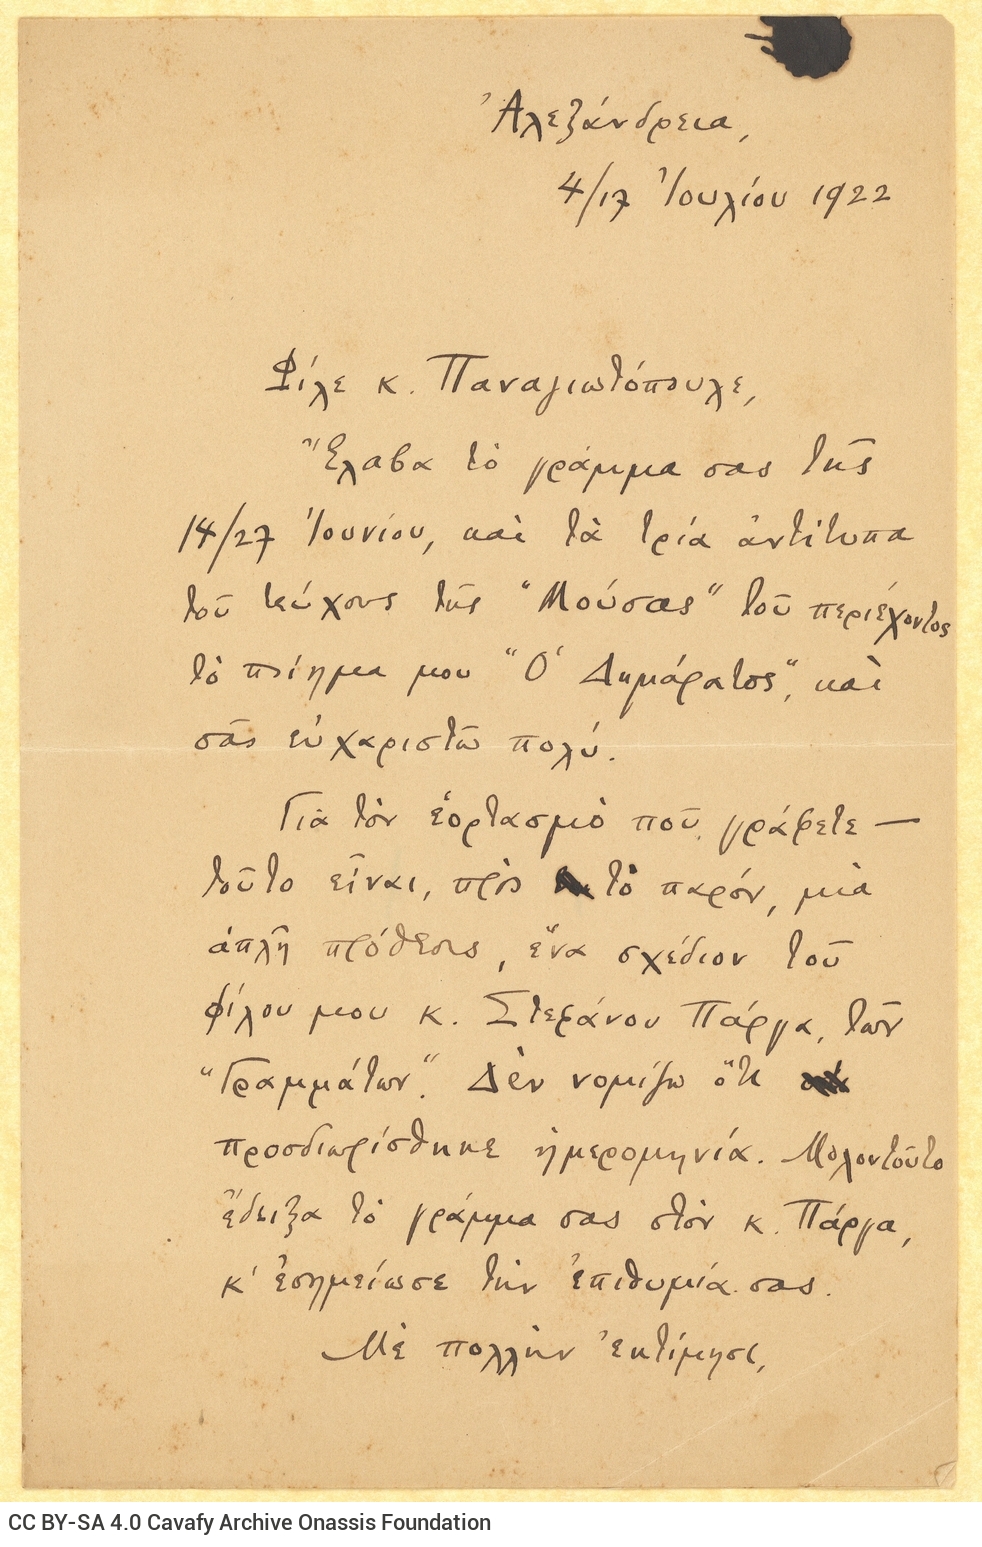 Ἀλεξάνδρεια,
4/17 Ἰουλίου 1922
Φίλε κ. Παναγιωτόπουλε,
Ἔλαβα τὸ γράμμα σας τῆς
14/27 Ἰουνίου, καὶ τὰ τρία ἀντίτυπα
τοῦ τεύχους τῆς "Μούσας" τοῦ περιέχοντος
τὸ ποίημα μου "Ὁ Δημάρατος", καὶ
σᾶς εὐχαριστῶ πολύ.
Γιὰ τὸν ἑορτασμὸ ποῦ γράφετε —
τοῦτο εἶναι, πρὸς τὸ παρόν, μιὰ
ἁπλῆ πρόθεσις, ἕνα σχέδιον τοῦ
φίλου μου κ. Στεφάνου Πάργα, τῶν
"Γραμμάτων". Δὲν νομίζω ὅτι
προσδιωρίσθηκε ἡμερομηνία. Μολοντοῦτο
ἔδειξα τὸ γράμμα σας στὸν κ. Πάργα,
κ' ἐσημείωσε τὴν ἐπιθυμία σας.
Μὲ πολλὴν ἐκτίμησι,
CC BY-SA 4.0 Cavafy Archive Onassis Foundation